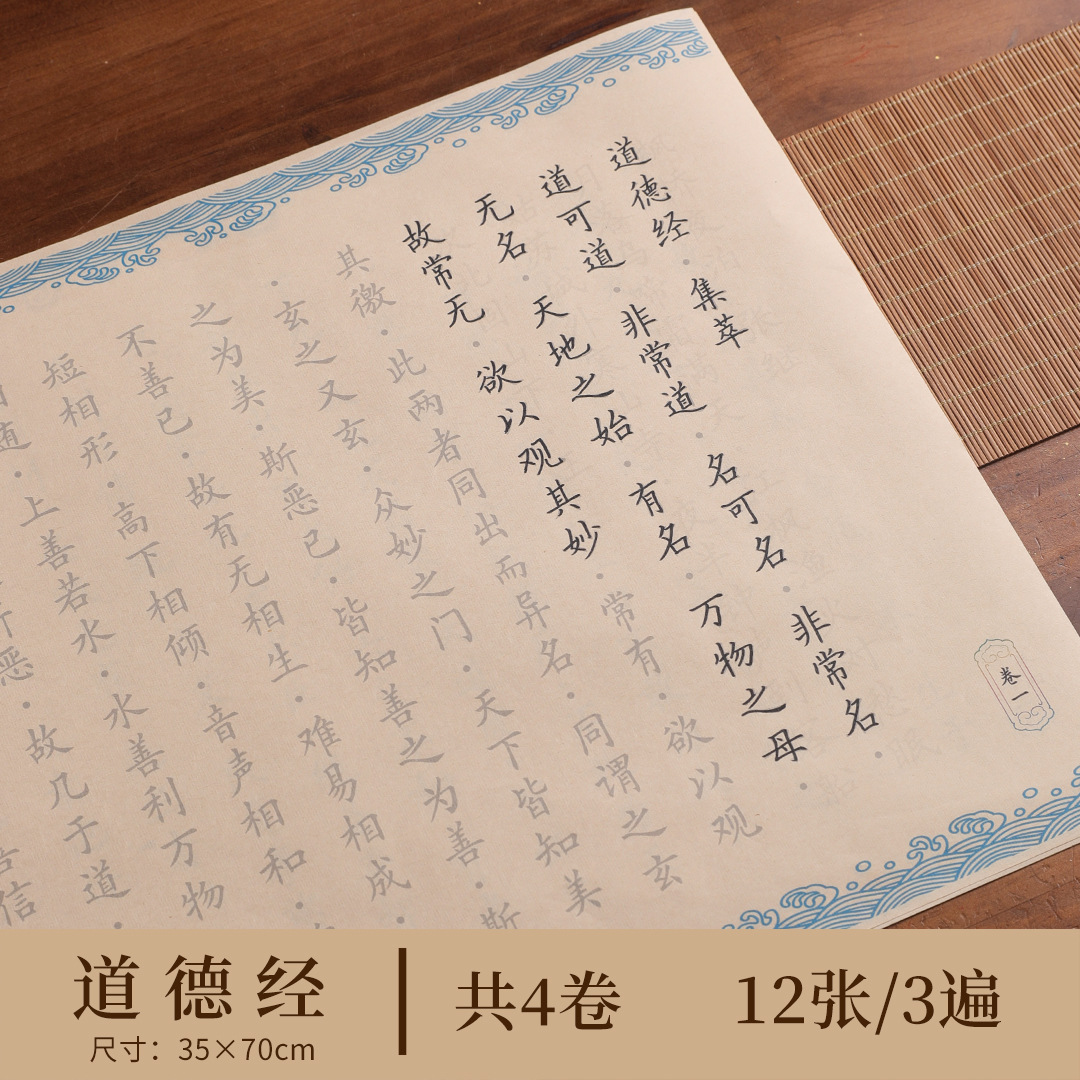 道德经·集萃
道可道·非常道·名可名·非常名·
无名·天地之始·有名·万物之母·
故常无·欲以观其妙·常有·欲以观
其徼·此两者同出而异名·同谓之玄
·玄之又玄·众妙之门·天下皆知美
之为美·斯恶已·皆知善之为善·斯
不善已·故有无相生·难易相成·
短相形·高下相倾·音声相和·
随·上善若水·水善利万物
恶·故几于道·
信
卷一
道德经
尺寸：35×70cm
共4卷
12张/3遍